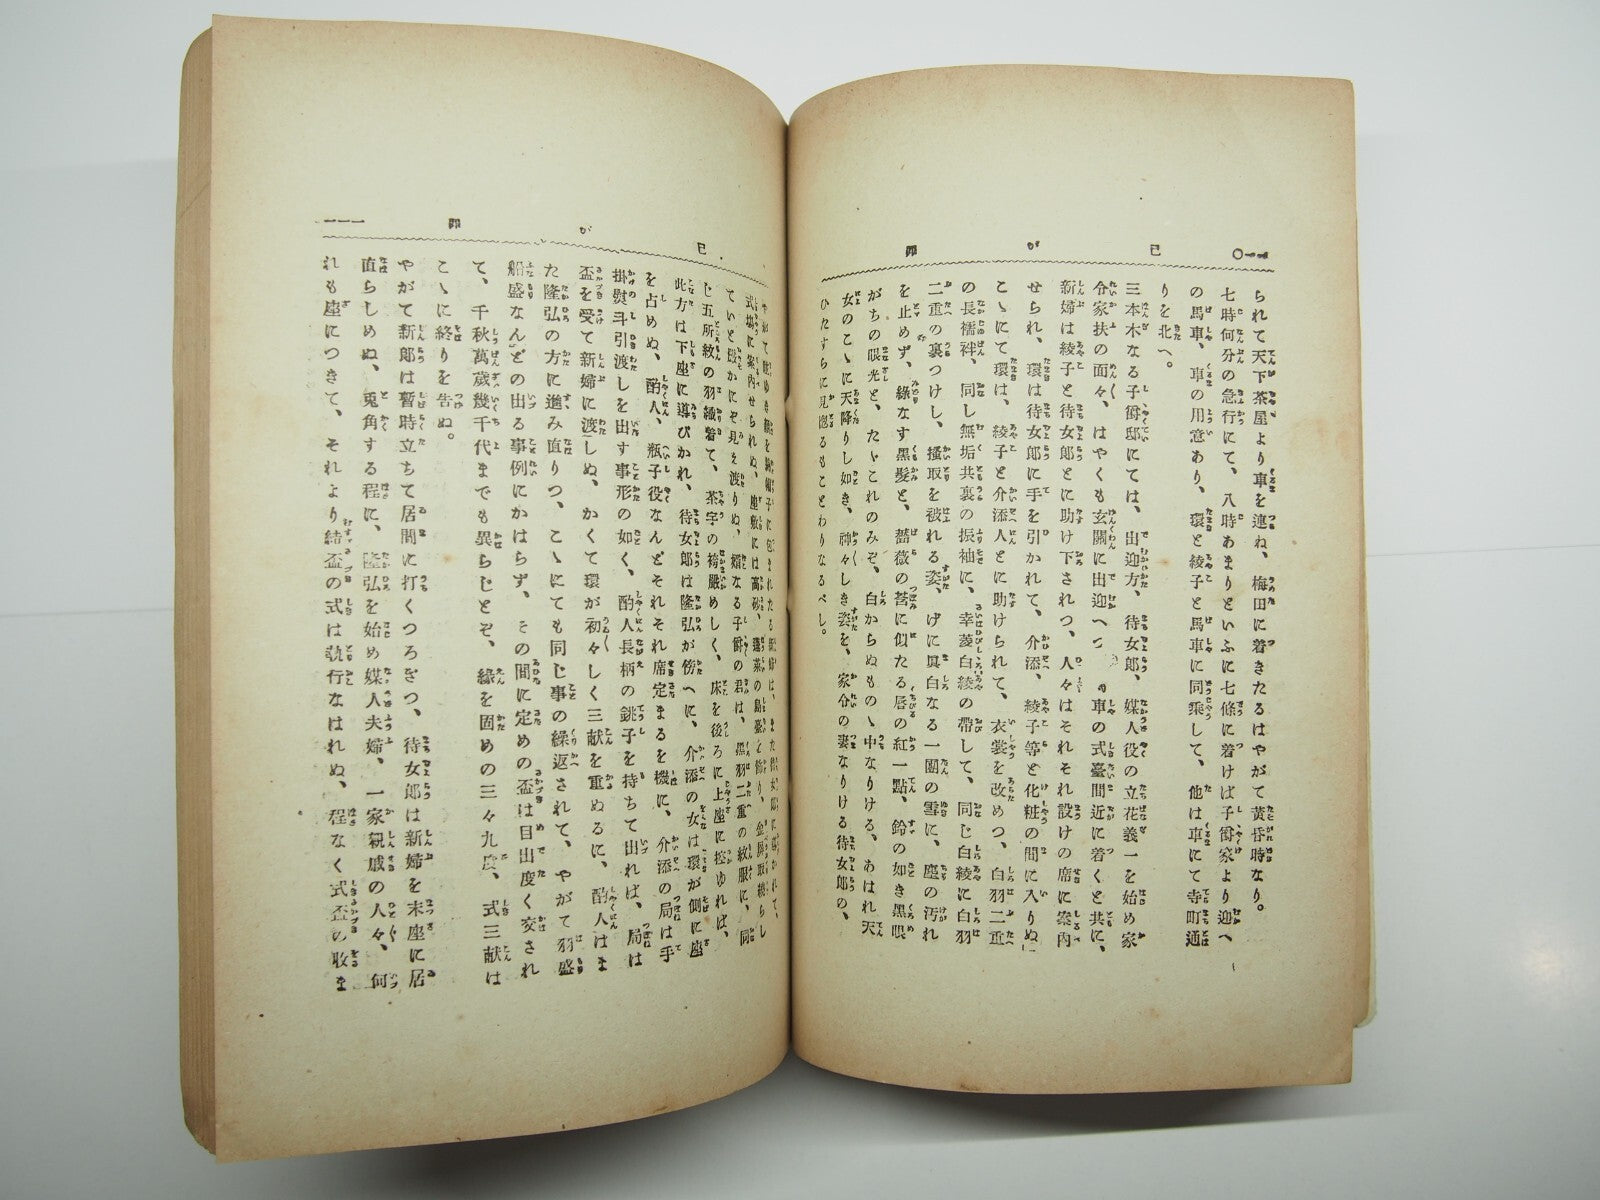 一一〇 己が罪
られて天下茶屋より車を連ね、梅田に着きたるはやがて黄昏時なり。
七時何分の急行にて、八時あまりといふに七條に着けば子爵家より迎へ
の馬車、車の用意あり、環と綾子と馬車に同乘して、他は車にて寺町通
りを北へ。
三本木なる子爵邸にては、出迎方、待女郎、媒人役の立花義一を始め家
令家扶の面々、はやくも玄關に出迎へつ、車の式臺間近に着くと共に、
新婦は綾子と待女郎とに助け下されつ、人々はそれぞれ設けの席に案内
せられ、環は待女郎に手を引かれて、介添、綾子等と化粧の間に入りぬ
こゝにて環は、綾子と介添人とに助けられて、衣裳を改めつ、白羽二重
の長襦袢、同し無垢共裏の振袖に、幸菱白綾の帶して、同じ白綾に白羽
二重の裏つけし、搔取を被れる姿、げに眞白なる一團の雪に、塵の汚れ
を止めず、綠なす黑髮と、薔薇の莟に似たる唇の紅一點、鈴の如き黑眼
がちの眼光と、たゞこれのみぞ、白からぬものゝ中なりける、あはれ天
女のこゝに天降りし如き、神々しき姿を、家令の妻なりける待女郎の、
ひたすらに見惚るもことわりなるべし。
己が罪 一一一
やがて ゆき を 帽子に包まれたる は、また待女郎に導かれて、
式場に案内せられぬ、座敷には高砂、蓬萊の島臺を飾り、金屏 らし
ていと かにぞ見え渡りぬ、壻なる子爵の君は、黑羽二重の紋服に、同
じ五所紋の羽織着て、茶宇の袴嚴めしく、床を後ろに上座に控ゆれば、
此方は下座に導びかれ、待女郎は隆弘が傍へに、介添の女は環が側に座
を占めぬ、酌人、瓶子役なんどそれぞれ席定まるを機に、介添の局は手
掛熨斗引渡しを出す事形の如く、酌人長柄の銚子を持ちて出れば、局は
盃を受て新婦に渡しぬ、かくて環が初々しく三献を重ぬるに、酌人はま
た隆弘の方に進み直りつ、こゝにても同じ事の繰返されて、やがて羽盛
船盛なんどの出る事例にかはらず、その間に定めの盃は目出度く交され
て、千秋萬歲幾千代までも異らじとぞ、緣を固めの三々九度、式三献は
こゝに終りを告ぬ。
やがて新郎は暫時立ちて居間に打くつろぎつ、待女郎は新婦を末座に居
直らしめぬ、兎角する程に、隆弘を始め媒人夫婦、一家親戚の人々、何
れも座につきて、それより結盃の式は執行なはれぬ、程なく式盃の收ま